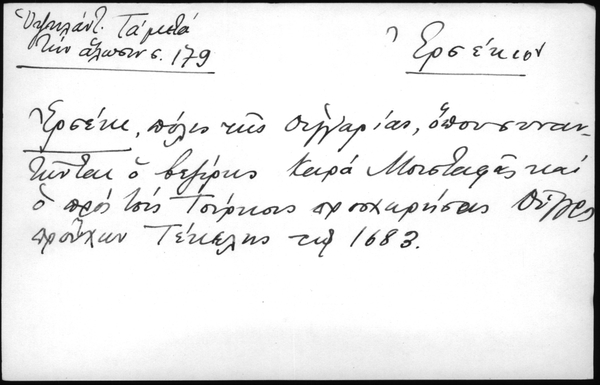 Ὑψηλάντ. Τὰ μετὰ
τὴν ἅλωσιν σ. 179
Ἐρσέκιον
Ἐρσέκ, πόλις τῆς Οὑγγαρίας, ὅπου συναν-
τῶνται ὁ βεζίρης Καρὰ Μουσταφᾶς καὶ
ὁ πρὸς τοὺς Τούρκους προσχωρήσας Οὗγγρος
Τέκελης τῷ 1683.